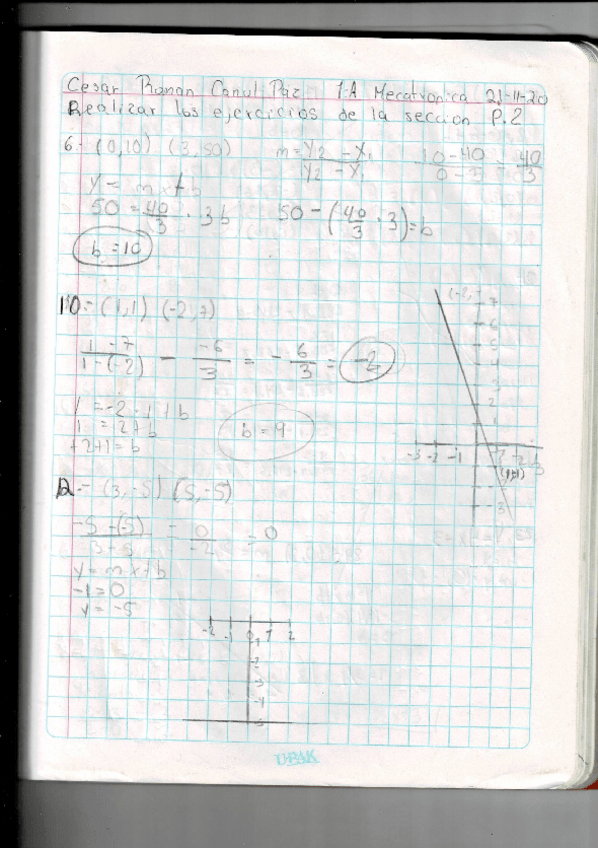 Cesar Roman Canul Paz 1-A Mecatronica 21-11-20
Realizar los ejercicios de la seccion P.2
6.- (0,10) (3,50) m = Y2 - X1 / Y2 - X1 10-40 / 0-3 = 40/3
y = mx+b
50 = 40/3 · 3b 50 - (40/3 · 3) = b
b = 10
10.- (1,1) (-2,7)
1-7 / 1-(-2) - -6/3 = - 6/3 = -2
1 = -2·1+b
1 = 2+b b = 9
+2+1=b
12.- (3,-5) (5,-5)
-5-(-5) / 3-5 = 0/-2 = 0
y = mx+b
-1=0
y = -5
(-2,
7
6
5
4
3
2
1
-3 -2 -1
(1,1)
3
-2 -1 0 1 2
-2
-3
-4
-5
UPAK